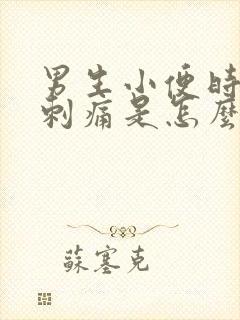 男生小便时
刺痛是怎麼
蘇塞克